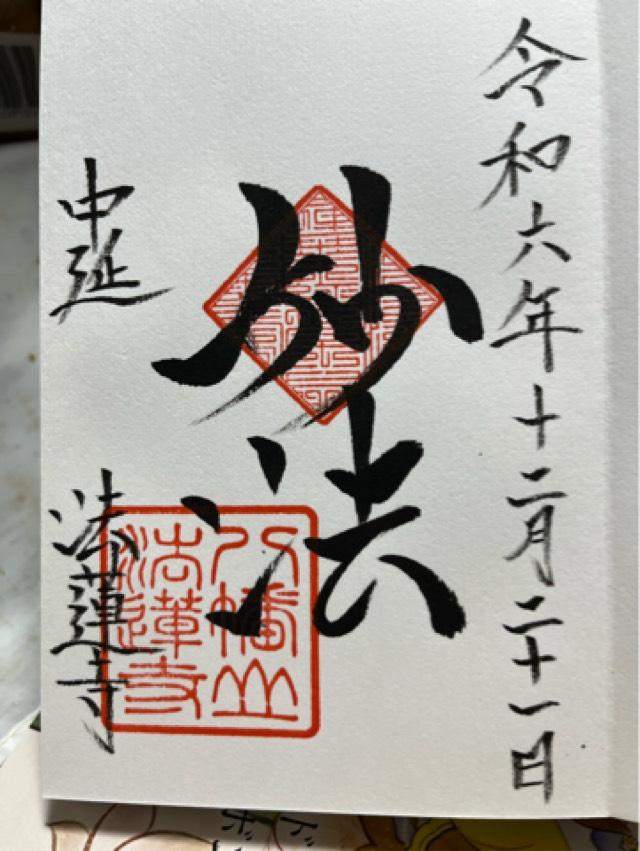 令和六年十二月二十一日
妙法
八幡山
法蓮寺
中延
法蓮寺